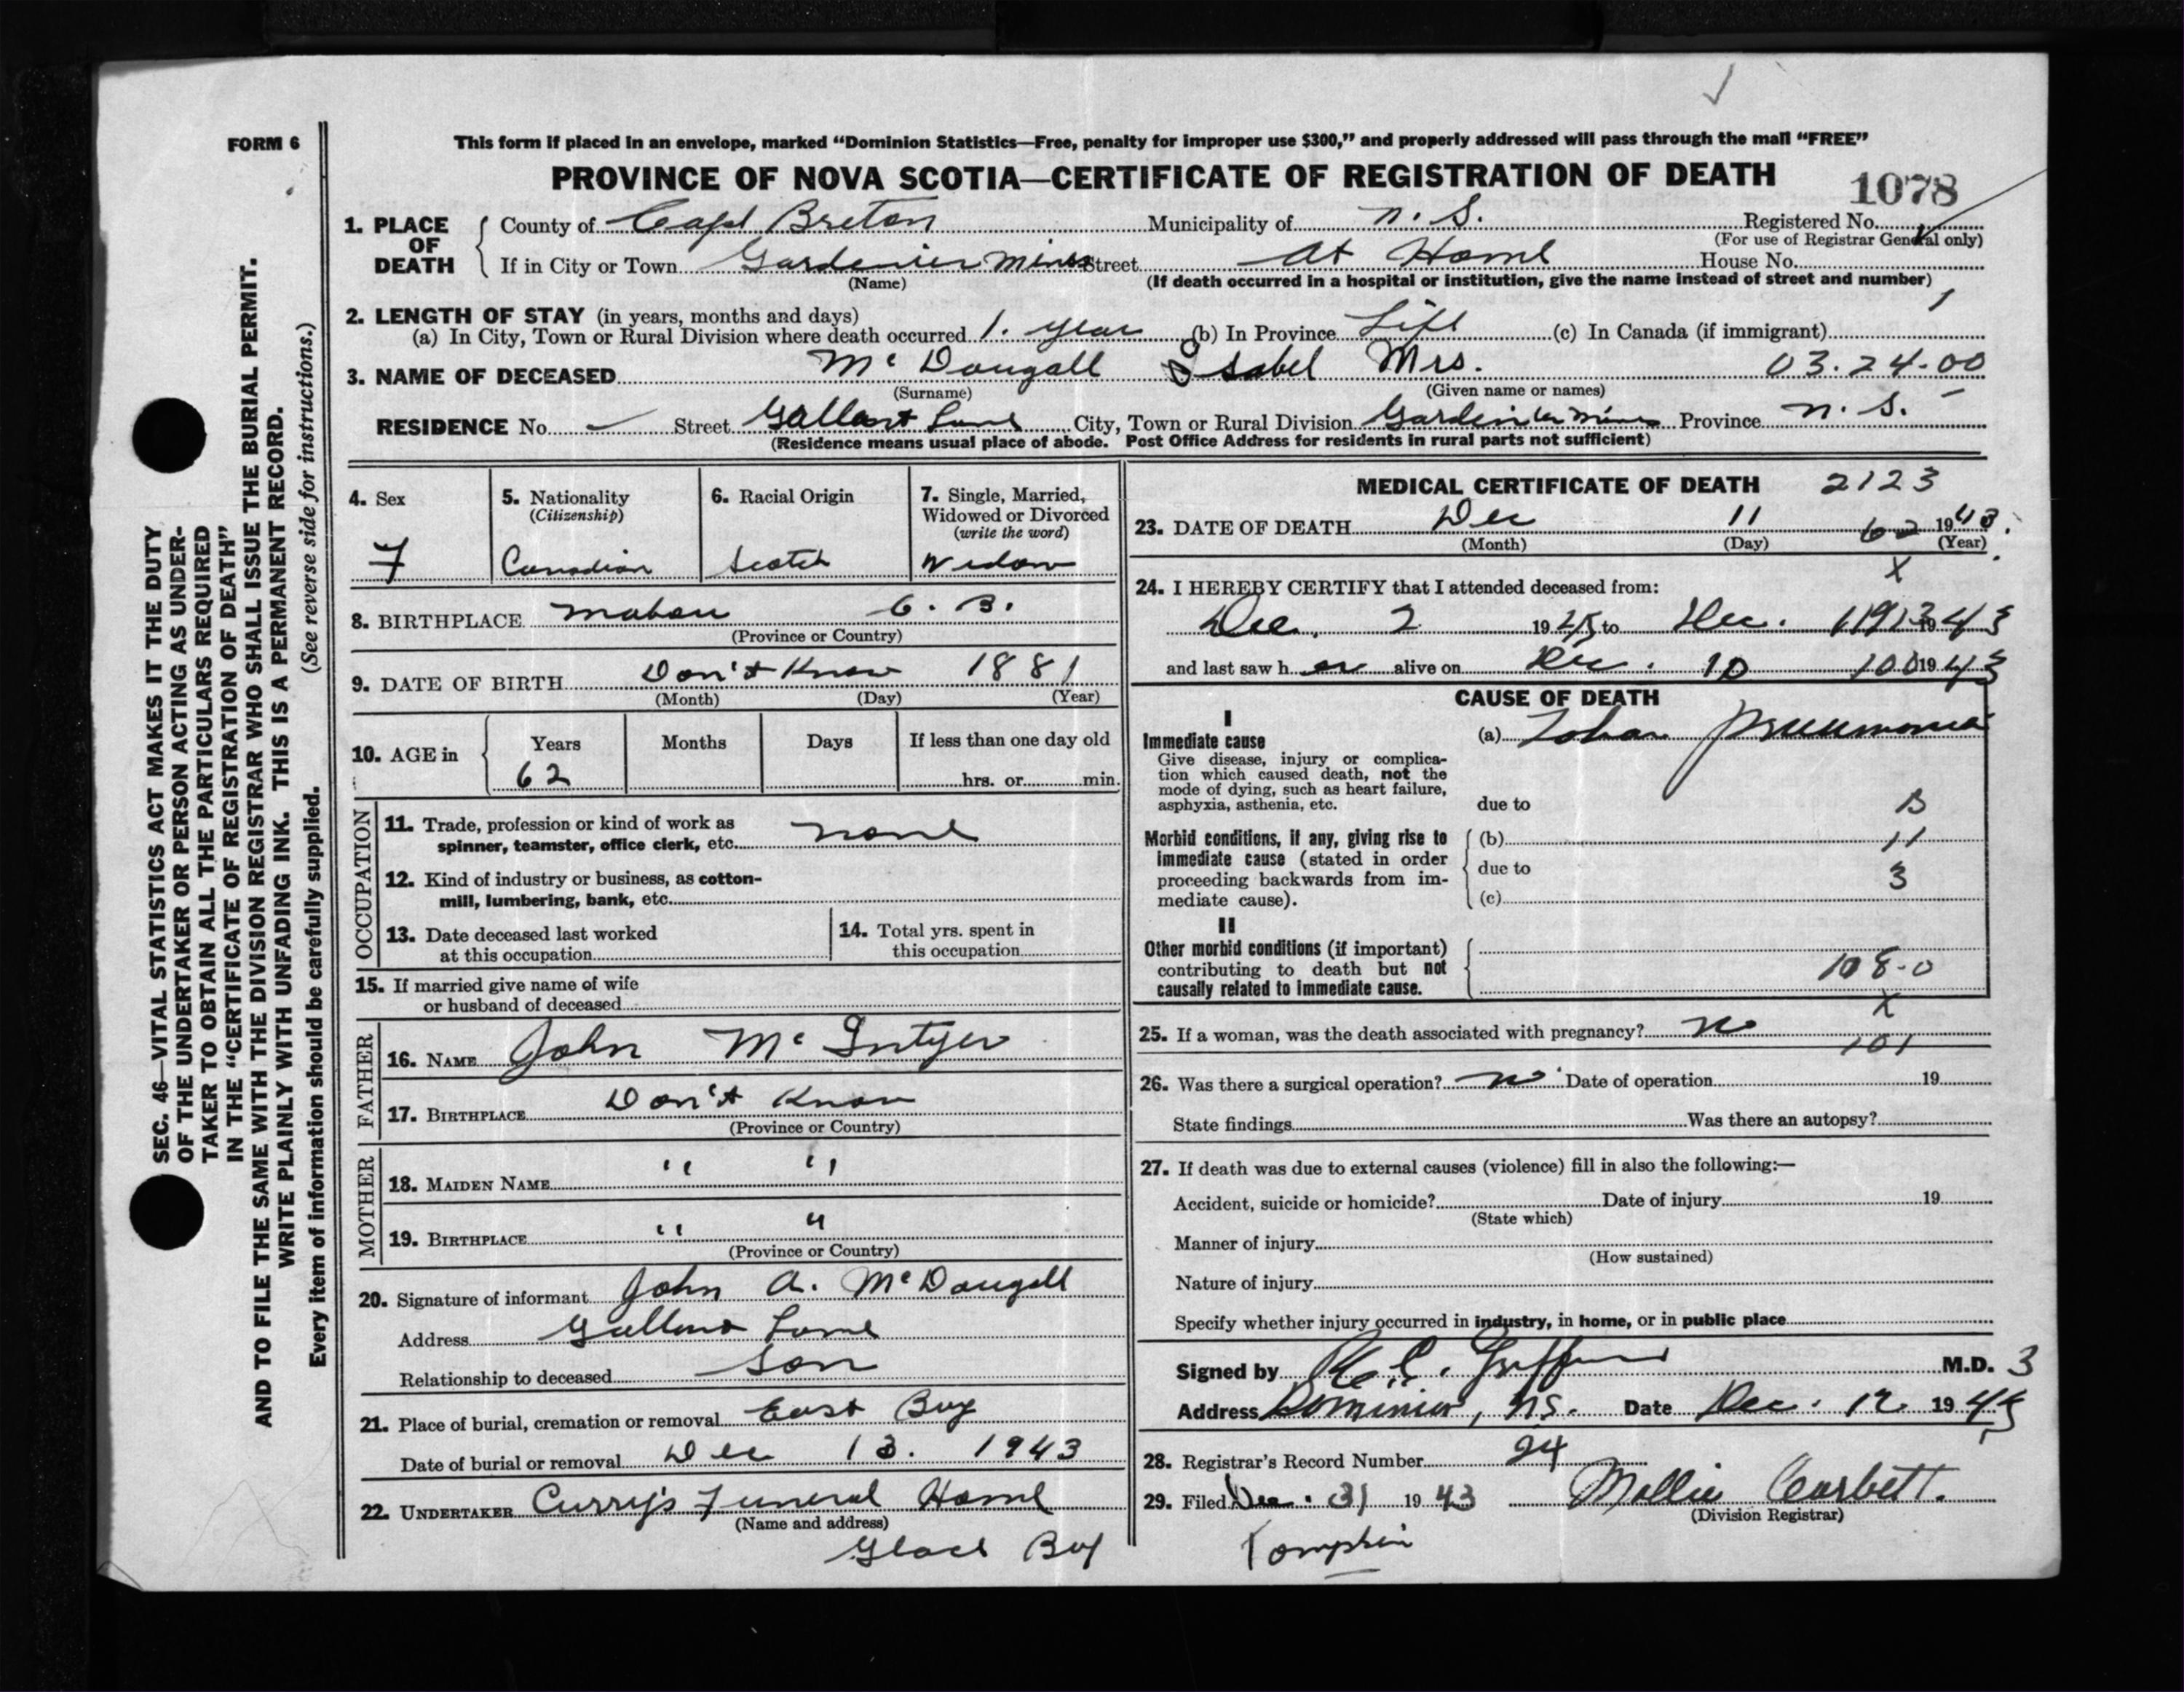 FORM 6
This form if placed in an envelope, marked “Dominion Statistics—Free, penalty for improper use $300,” and properly addressed will pass through the mail “FREE”
PROVINCE OF NOVA SCOTIA—CERTIFICATE OF REGISTRATION OF DEATH
1078
1. PLACE OF DEATH
County of Cape Breton Municipality of N. S. Registered No.
(For use of Registrar General only)
If in City or Town Gardenier Mines Street At Home House No.
(Name) (If death occurred in a hospital or institution, give the name instead of street and number)
2. LENGTH OF STAY (in years, months and days)
(a) In City, Town or Rural Division where death occurred 1. year (b) In Province Life (c) In Canada (if immigrant)
3. NAME OF DECEASED McDougall Isabel Mrs. 03.24-00
(Surname) (Given name or names)
RESIDENCE No. — Street Gallant Lane City, Town or Rural Division Gardinier Mines Province N. S.
(Residence means usual place of abode. Post Office Address for residents in rural parts not sufficient)
4. Sex
F
5. Nationality
(Citizenship)
Canadian
6. Racial Origin
Scotch
7. Single, Married, Widowed or Divorced
(write the word)
Widow
8. BIRTHPLACE Mabou C. B.
(Province or Country)
9. DATE OF BIRTH Don't Know 1881
(Month) (Day) (Year)
10. AGE in
Years Months Days If less than one day old
62 hrs. or min.
OCCUPATION
11. Trade, profession or kind of work as
spinner, teamster, office clerk, etc. none
12. Kind of industry or business, as cotton-
mill, lumbering, bank, etc.
13. Date deceased last worked
at this occupation
14. Total yrs. spent in
this occupation
15. If married give name of wife
or husband of deceased
FATHER
16. NAME John McIntyer
17. BIRTHPLACE Don't Know
(Province or Country)
MOTHER
18. MAIDEN NAME " "
19. BIRTHPLACE " "
(Province or Country)
20. Signature of informant John A. McDougall
Address Gallant Lane
Relationship to deceased Son
21. Place of burial, cremation or removal East Bay
Date of burial or removal Dec 13. 1943
22. UNDERTAKER Curry's Funeral Home
(Name and address)
Glace Bay
MEDICAL CERTIFICATE OF DEATH 2123
23. DATE OF DEATH Dec 11 62 1943.
(Month) (Day) (Year)
X
24. I HEREBY CERTIFY that I attended deceased from:
Dec. 2 1943 to Dec. 11 1943
and last saw her alive on Dec. 10 100 1943
CAUSE OF DEATH
I
Immediate cause
Give disease, injury or complica-
tion which caused death, not the
mode of dying, such as heart failure,
asphyxia, asthenia, etc.
(a) Lobar Pneumonia
due to B
Morbid conditions, if any, giving rise to
immediate cause (stated in order
proceeding backwards from im-
mediate cause).
(b) 11
due to 3
(c)
II
Other morbid conditions (if important)
contributing to death but not
causally related to immediate cause.
108-0
X
25. If a woman, was the death associated with pregnancy? no
101
26. Was there a surgical operation? no Date of operation 19
State findings Was there an autopsy?
27. If death was due to external causes (violence) fill in also the following:—
Accident, suicide or homicide? Date of injury 19
(State which)
Manner of injury
(How sustained)
Nature of injury
Specify whether injury occurred in industry, in home, or in public place
Signed by M.D. 3
Address Dominion, N.S. Date Dec. 12 1943
28. Registrar's Record Number 24
29. Filed Dec. 31 1943 Mollie Corbett.
(Division Registrar)
Tompkin
SEC. 46—VITAL STATISTICS ACT MAKES IT THE DUTY
OF THE UNDERTAKER OR PERSON ACTING AS UNDER-
TAKER TO OBTAIN ALL THE PARTICULARS REQUIRED
IN THE “CERTIFICATE OF REGISTRATION OF DEATH”
AND TO FILE THE SAME WITH THE DIVISION REGISTRAR WHO SHALL ISSUE THE BURIAL PERMIT.
WRITE PLAINLY WITH UNFADING INK. THIS IS A PERMANENT RECORD.
Every item of information should be carefully supplied. (See reverse side for instructions.)